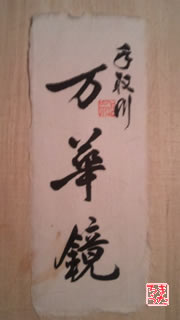 手取川
万華鏡